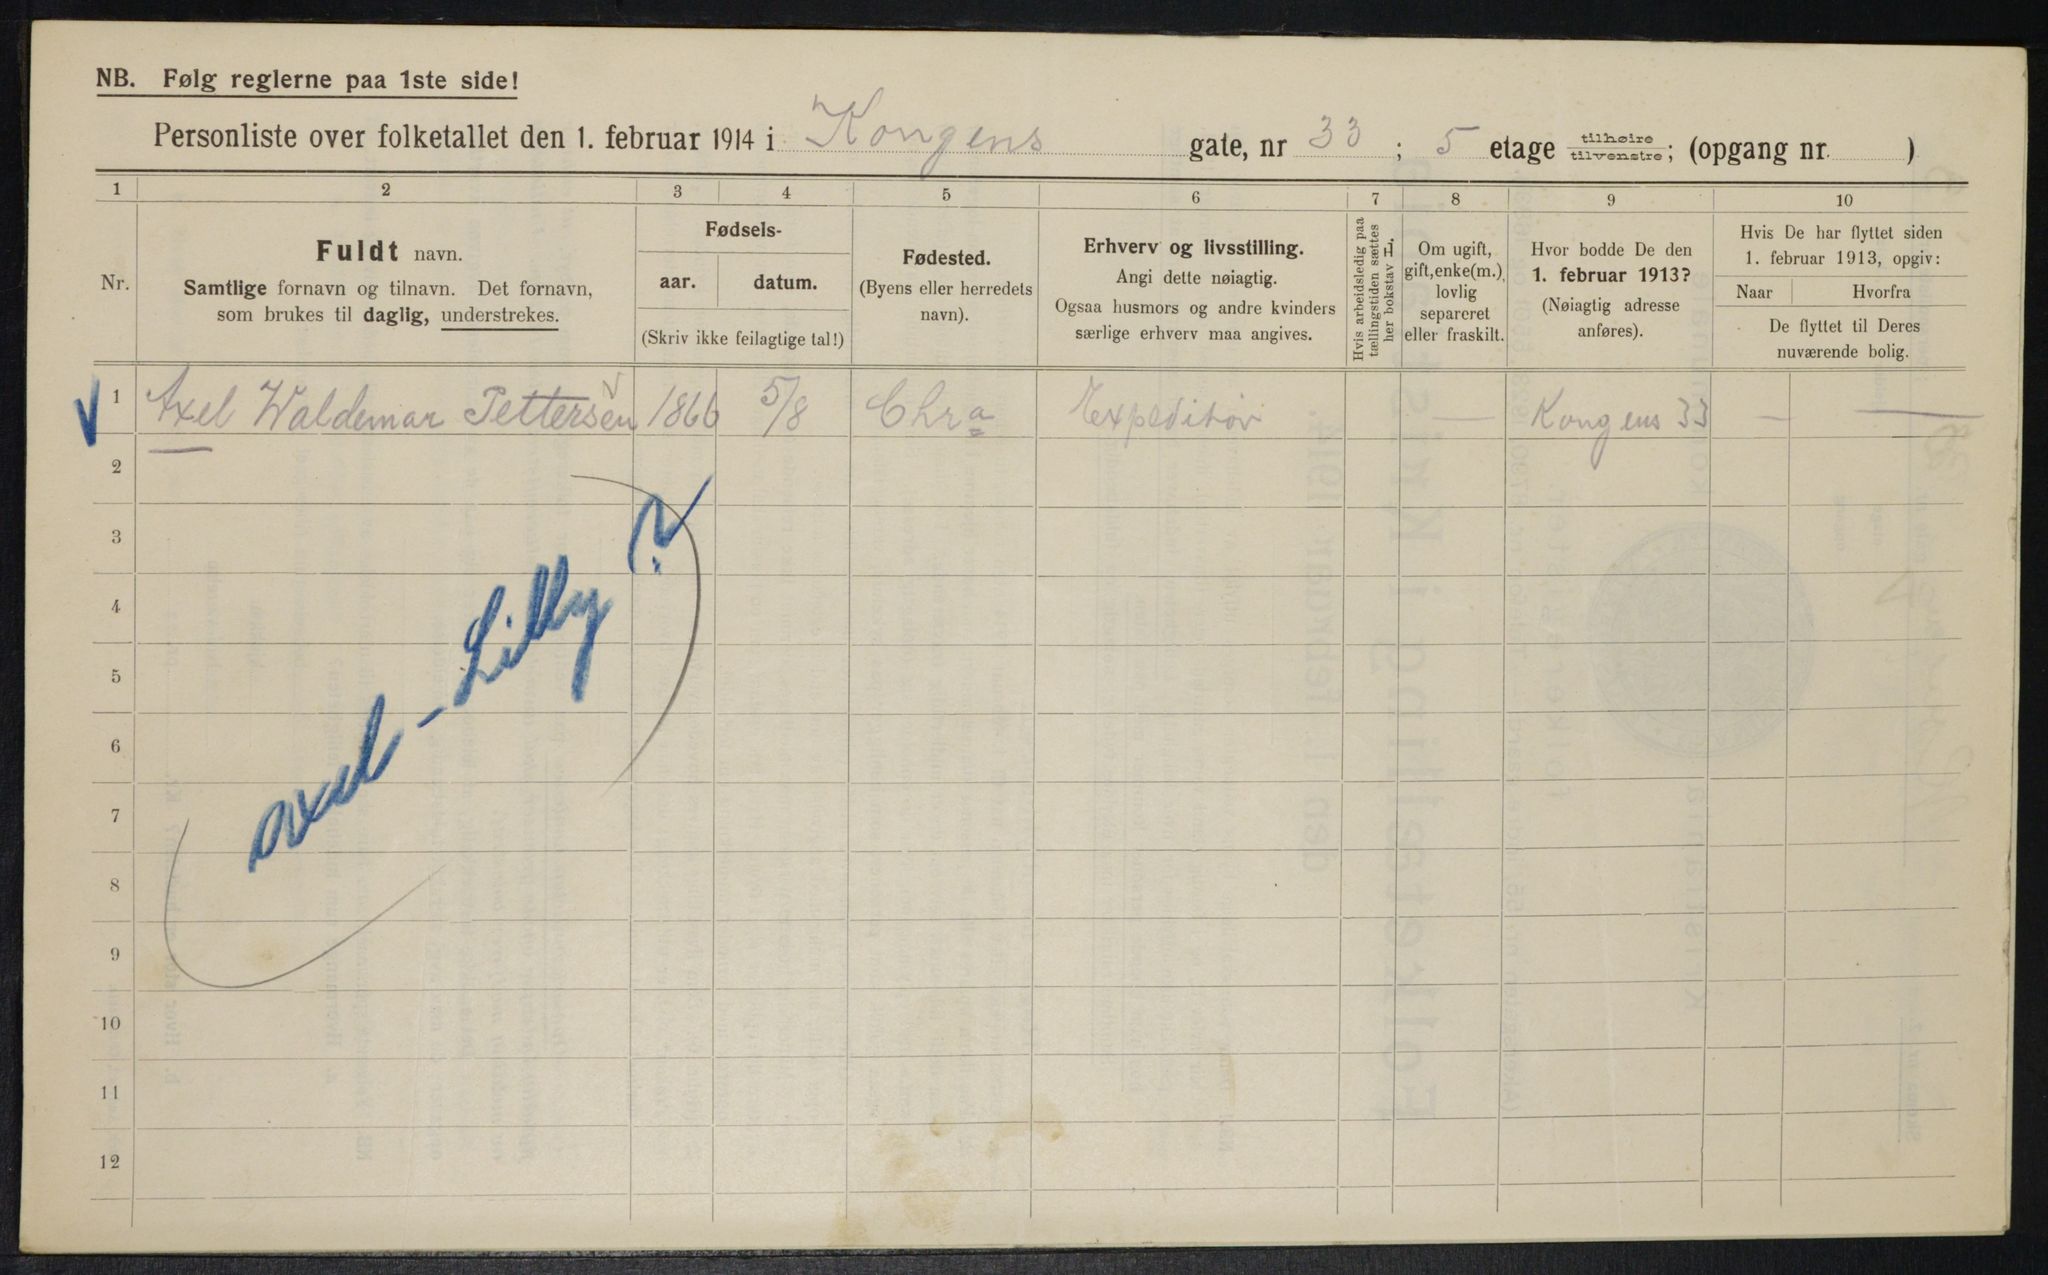 NB. Følg reglerne paa 1ste side!
Personliste over folketallet den 1. februar 1914 i Kongens gate, nr 33 ; 5 etage tilhøire tilvenstre; (opgang nr. )
1 2 3 4 5 6 7 8 9 10
Nr.
Fuldt navn.
Samtlige fornavn og tilnavn. Det fornavn,
som brukes til daglig, understrekes.
Fødsels-
aar. datum.
(Skriv ikke feilagtige tal!)
Fødested.
(Byens eller herredets
navn).
Erhverv og livsstilling.
Angi dette nøiagtig.
Ogsaa husmors og andre kvinders
særlige erhverv maa angives.
Hvis arbeidsledig paa
tællingstiden sættes
her bokstav L.
Om ugift,
gift, enke(m.),
lovlig
separeret
eller fraskilt.
Hvor bodde De den
1. februar 1913?
(Nøiagtig adresse
anføres).
Hvis De har flyttet siden
1. februar 1913, opgiv:
Naar Hvorfra
De flyttet til Deres
nuværende bolig.
1 Axel Waldemar Pettersen 1866 5/8 Chra Expeditør — Kongens 33 — —
2
3
4
5
6
7
8
9
10
11
12
Axel - Lilly ?